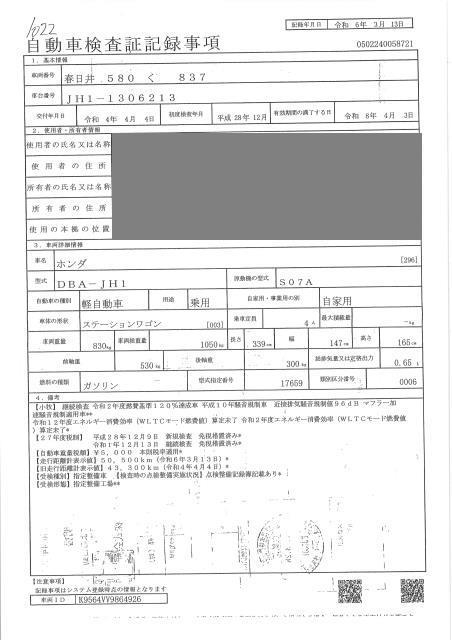 1022
記録年月日 令和 6年 3月 13日
自動車検査証記録事項
0502240058721
1. 基本情報
車両番号 春日井 580 く 837
車台番号 JH1-1306213
交付年月日 令和 4年 4月 4日 初度検査年月 平成 28年 12月 有効期間の満了する日 令和 8年 4月 3日
2. 使用者・所有者情報
使用者の氏名又は名称
使用者の住所
所有者の氏名又は名称
所有者の住所
使用の本拠の位置
3. 車両詳細情報
車名 ホンダ [296]
型式 DBA-JH1 原動機の型式 S07A
自動車の種別 軽自動車 用途 乗用 自家用・事業用の別 自家用
車体の形状 ステーションワゴン [003] 乗車定員 4人 最大積載量 -kg
車両重量 830kg 車両総重量 1050kg 長さ 339cm 幅 147cm 高さ 165cm
前軸重 530kg 後軸重 300kg 総排気量又は定格出力 0.65 L
燃料の種類 ガソリン 型式指定番号 17659 類別区分番号 0006
4. 備考
【小牧】 継続検査 令和2年度燃費基準120%達成車 平成10年騒音規制車 近接排気騒音規制値96dB マフラー加
速騒音規制適用車**
令和12年度エネルギー消費効率(WLTCモード燃費値)算定未了 令和2年度エネルギー消費効率(WLTCモード燃費値
)算定未了*
【27年度税制】 平成28年12月9日 新規検査 免税措置済み*
令和1年12月13日 継続検査 免税措置済み*
【自動車重量税額】¥5,000 本則税率適用*
【走行距離計表示値】50,500km(令和6年3月13日)*
【旧走行距離計表示値】43,300km(令和4年4月4日)*
【受検種別】指定整備車 【検査時の点検整備実施状況】点検整備記録簿記載あり*
【受検形態】指定整備工場**
【注意事項】
記録事項はシステム登録時点の情報となります
車両ID K9564VV9864926